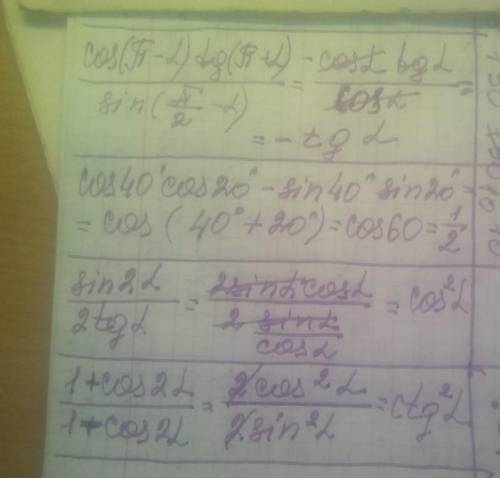 cos(π-α) tg(π-α) / sin(π/2 -α) = -cosα tgα / cosα =
= - tg α
cos40° cos20° - sin40° sin20° =
= cos (40° + 20°) = cos60 = 1/2
sin2α / 2tgα = 2sinα cosα / 2 sinα/cosα = cos²α
1+cos2α / 1-cos2α = 2cos²α / 2sin²α = ctg²α